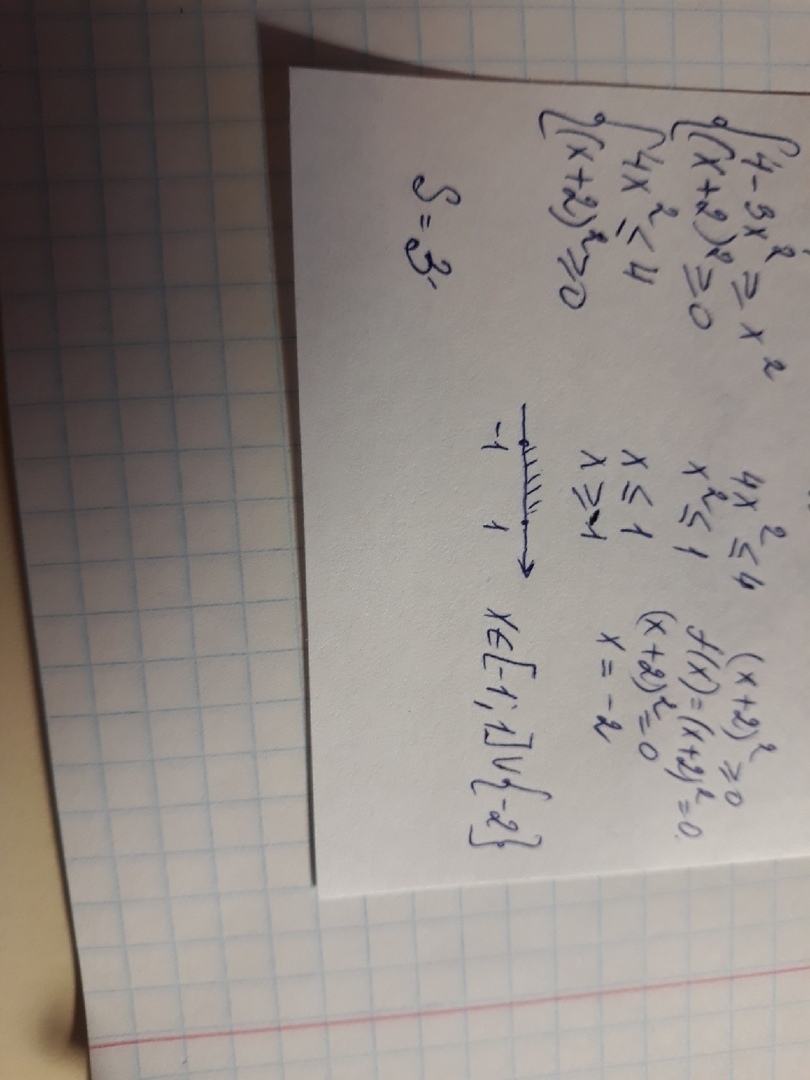 4-3x² ≥ x²
(x+2)² ≥ 0
4x² ≤ 4
(x+2)² ≥ 0
S = 3.
4x² ≤ 4
x² ≤ 1
x ≤ 1
x ≥ -1
-1 1
(x+2)² ≥ 0
f(x) = (x+2)² = 0.
(x+2)² = 0
x = -2
x∈[-1; 1]∪{-2}